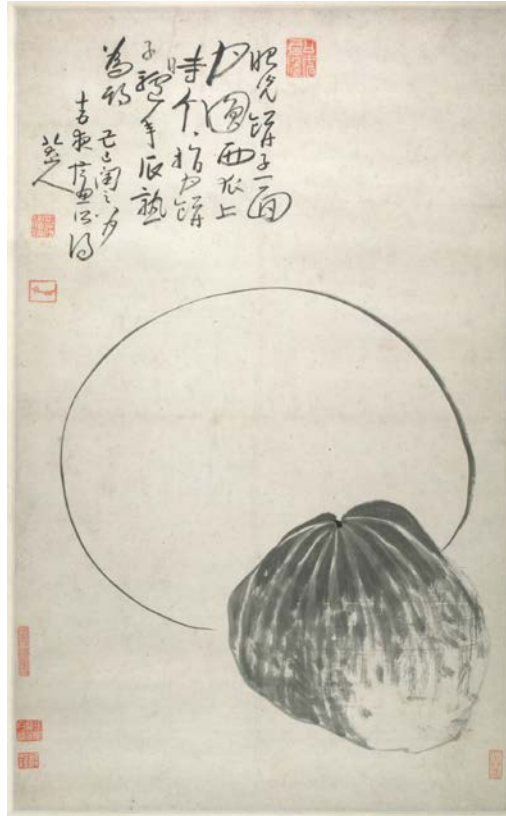 眼光餅子一面
月圓西瓜上
時个个指月餅
子驢年瓜熟
為期 己巳閏八月
十五夜畫所得
八大山人